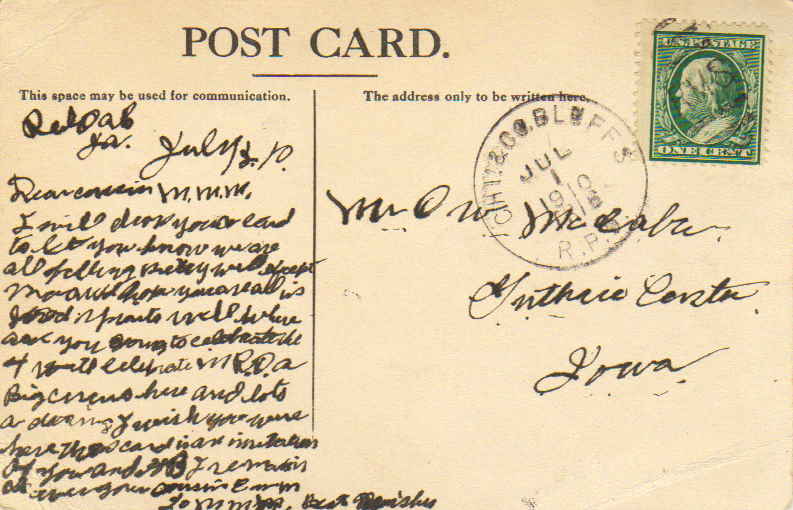 POST CARD.
This space may be used for communication.
The address only to be written here.
U.S. POSTAGE
ONE CENT
CHI. & CO. BLUFFS
JUL
1
1910
R.P.O.
Red Oak
Ia.
July 1, 10
Dear cousin M.M.M.
I will drop you a card
to let you know we are
all feeling pretty well except
hope you are all in
good spirits well where
are you going to celebrate the
4 I will celebrate in R.O. a
Big circus here and lots
a doing I wish you were
here this card is an invitation
of you and I remain
as ever your cousin
to M.M.M. Best Wishes
Mr O W McCabe
Guthrie Center
Iowa